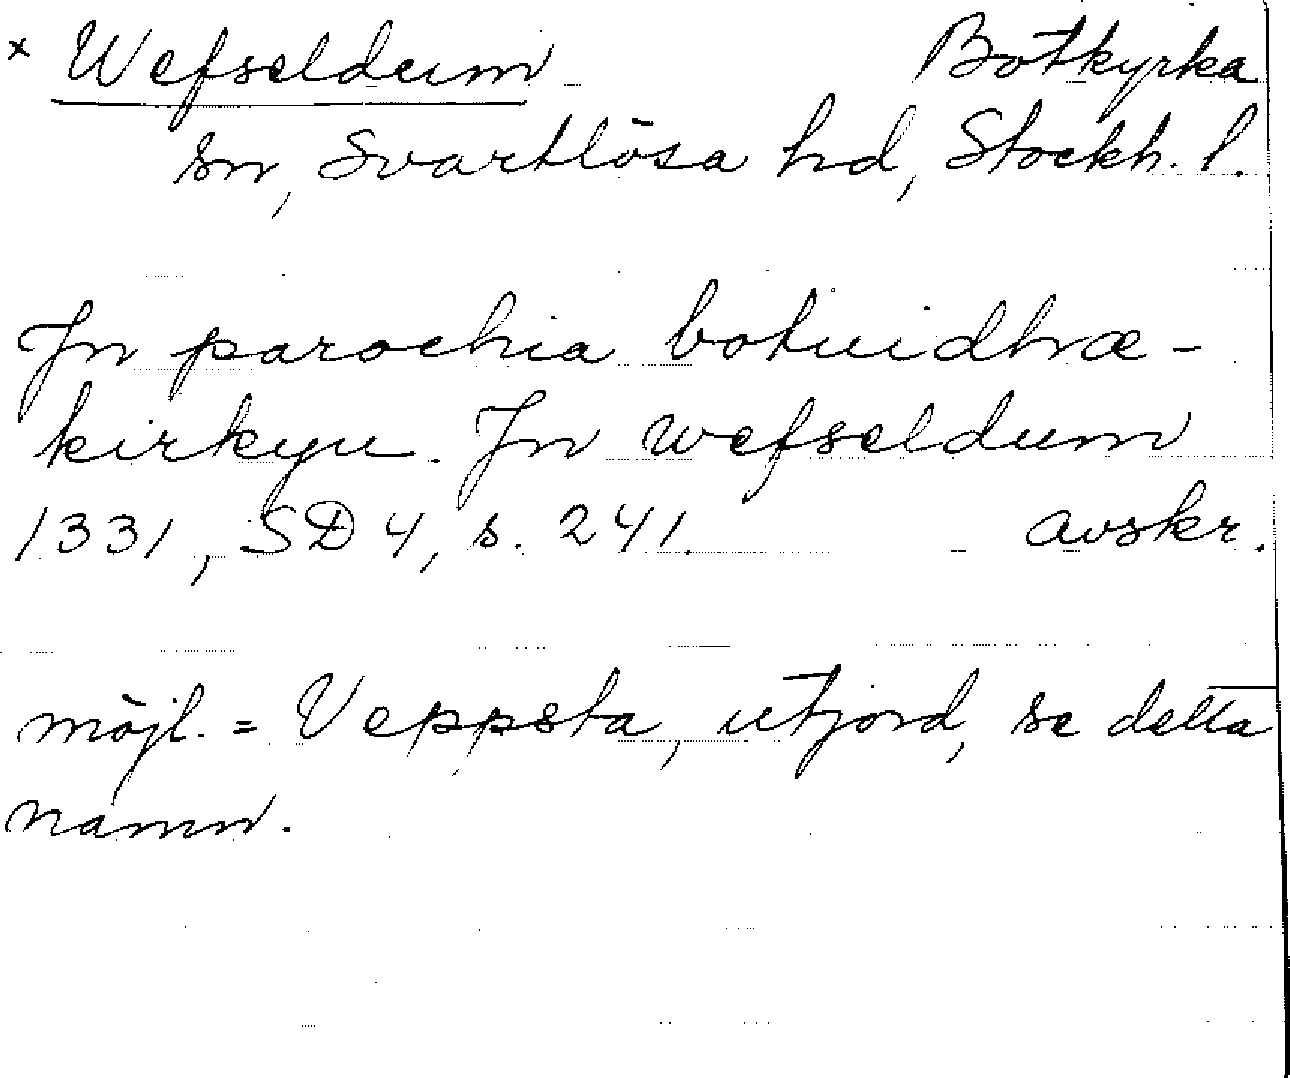 × Wefseldum Botkyrka
sn, Svartlösa hd, Stockh. l.
In parochia botuidhræ-
kirkyu. In wefseldum
1331, SD 4, s. 241. avskr.
möjl. = Veppsta, utjord, se detta
namn.